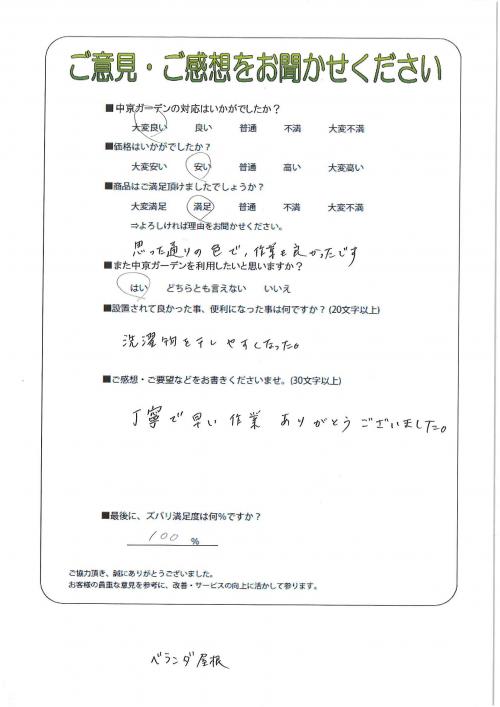 ご意見・ご感想をお聞かせください
■中京ガーデンの対応はいかがでしたか？
大変良い　良い　普通　不満　大変不満
■価格はいかがでしたか？
大変安い　安い　普通　高い　大変高い
■商品はご満足頂けましたでしょうか？
大変満足　満足　普通　不満　大変不満
⇒よろしければ理由をお聞かせください。
思った通りの色で、作業も良かったです
■また中京ガーデンを利用したいと思いますか？
はい　どちらとも言えない　いいえ
■設置されて良かった事、便利になった事は何ですか？(20文字以上)
洗濯物を干しやすくなった。
■ご感想・ご要望などをお書きくださいませ。(30文字以上)
丁寧で早い作業 ありがとうございました。
■最後に、ズバリ満足度は何％ですか？
100 ％
ご協力頂き、誠にありがとうございました。
お客様の貴重な意見を参考に、改善・サービスの向上に活かして参ります。
ベランダ屋根